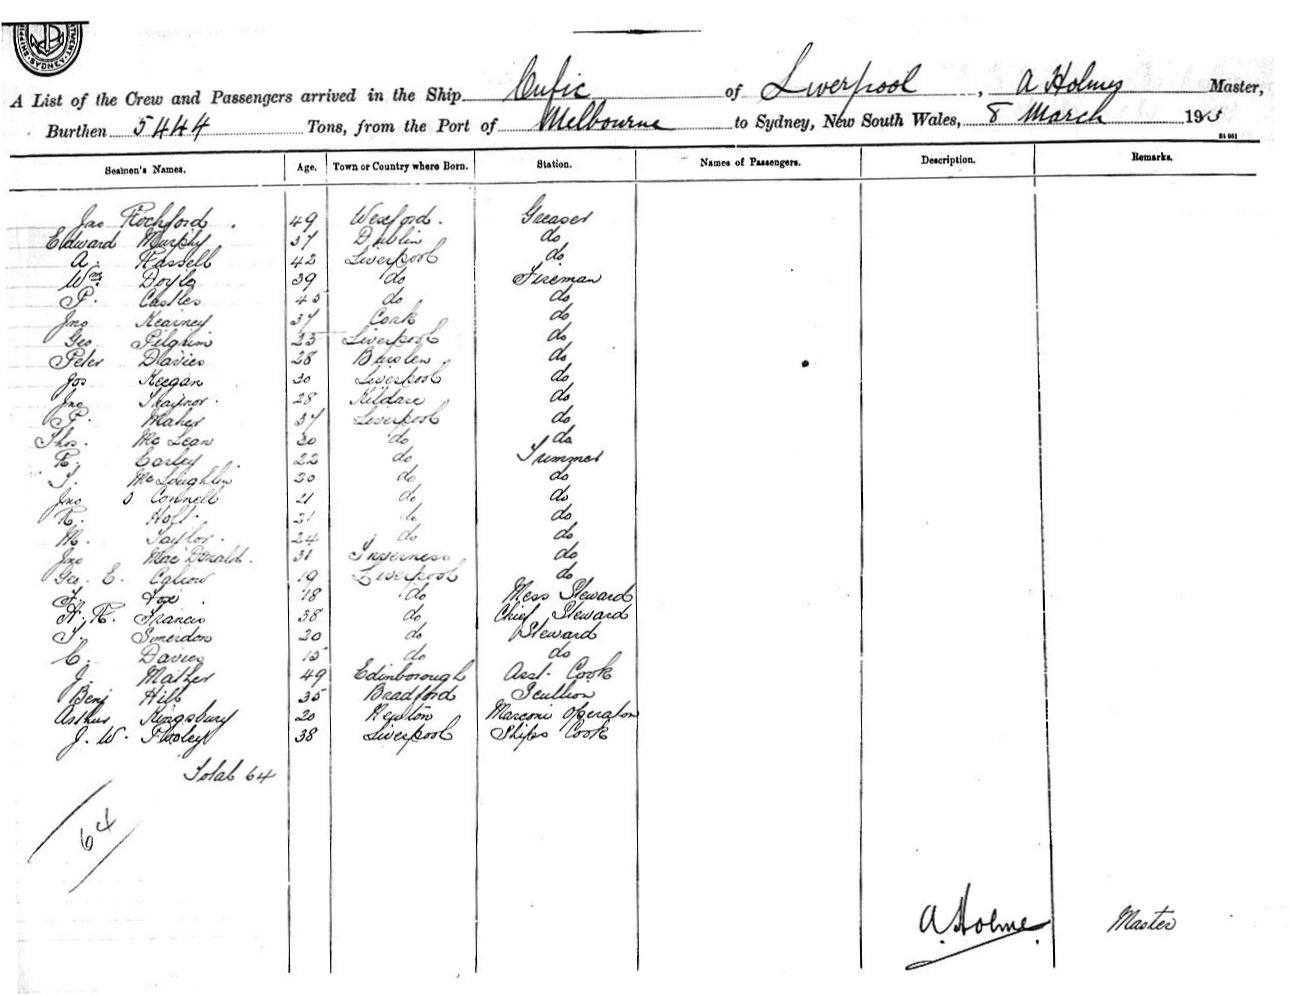 SYDNEY
A List of the Crew and Passengers arrived in the Ship Cufic of Liverpool, A Holmes Master,
Burthen 5444 Tons, from the Port of Melbourne to Sydney, New South Wales, 8 March 19
Seamen's Names. Age. Town or Country where Born. Station. Names of Passengers. Description. Remarks.
Jno Rochford. 49 Wexford. Greaser
Edward Murphy 37 Dublin do
A. Hassell 42 Liverpool do
Wm Doyle 39 do Fireman
P. Castles 45 do do
Jno Kearney 37 Cork do
Geo Pilgrim 25 Liverpool do
Peter Davies 28 do
Jos Keegan 30 Liverpool do
Jno Traynor. 28 Kildare do
P. Maher 37 Liverpool do
Thos. Mc Lean 30 do do
Earley 22 do Trimmer
T. Mc Loughlin 20 do do
Jno O Connell 21 do do
R. Holt 21 do do
M. Taylor. 24 do do
Jno Mac Donald. 31 Inverness do
Geo. E. 19 Liverpool do
Fox 18 do Mess Steward
Francis 38 do Chief Steward
T. Smerdon 20 do Steward
C. Davies 15 do do
J. Mather 49 Edinborough Asst. Cook
Benj Hill 35 Bradford Scullion
Arthur Kingsbury 20 Newton Marconi Operator
J. W. 38 Liverpool Ships Cook
Total 64
64
A. Holmes. Master